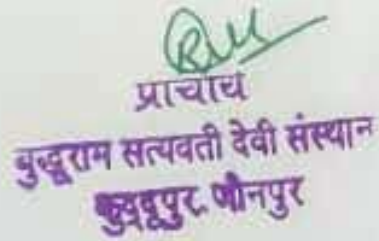 प्राचार्य
बुद्धूराम सत्यवती देवी संस्थान
कुद्दूपुर, जौनपुर